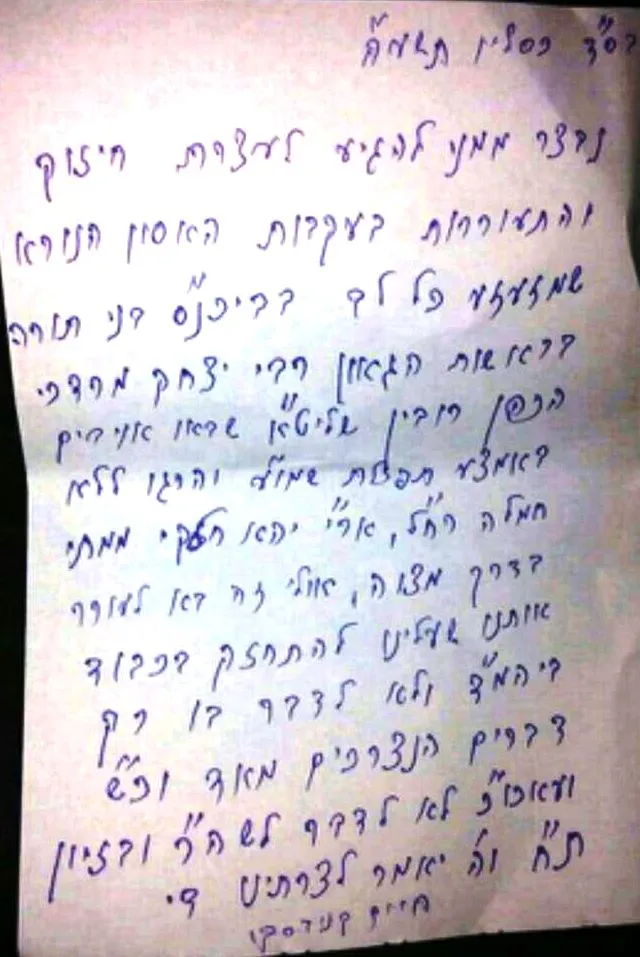 בס"ד כסליו תשע"ה
נבצר ממני להגיע לעצרת חיזוק
והתעוררות בעקבות האסון הנורא
שמזעזע כל לב בביכנ"ס בני תורה
בראשות הגאון רבי יצחק מרדכי
הכהן רובין שליט"א שבאו אויבים
באמצע תפלת שמו"ע והרגו ללא
חמלה רח"ל, אר"י יהא חלקי ממתי
בדרך מצוה, אולי זה בא לעורר
אותנו שעלינו להתחזק בכבוד
ביהמ"ד ולא לדבר בו רק
דברים הנצרכים מאד וכ"ש
ועאכו"כ לא לדבר לשה"ר ובזיון
ת"ח וה' יאמר לצרתינו די
חיים קניבסקי